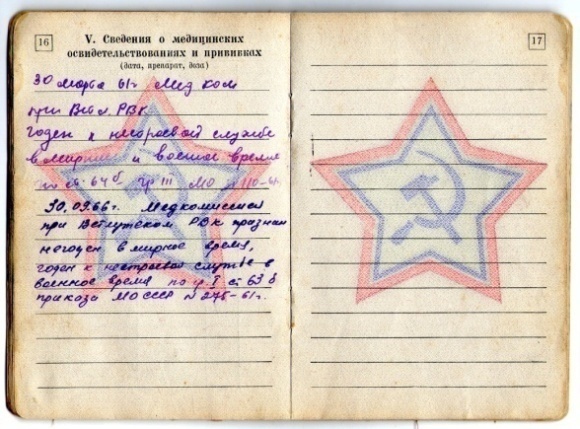 16
V. Сведения о медицинских
освидетельствованиях и прививках
(дата, препарат, доза)
30 марта 61г Мед ком
при Ветл. РВК
годен к нестроевой службе
в мирное и военное время
по ст. 64б гр III МО N 110-61г
30.09.66г. Медкомиссией
при Ветлужском РВК признан
негоден в мирное время,
годен к нестроевой службе в
военное время по гр. I ст 63 б
приказа МО СССР N 275-61г.
17